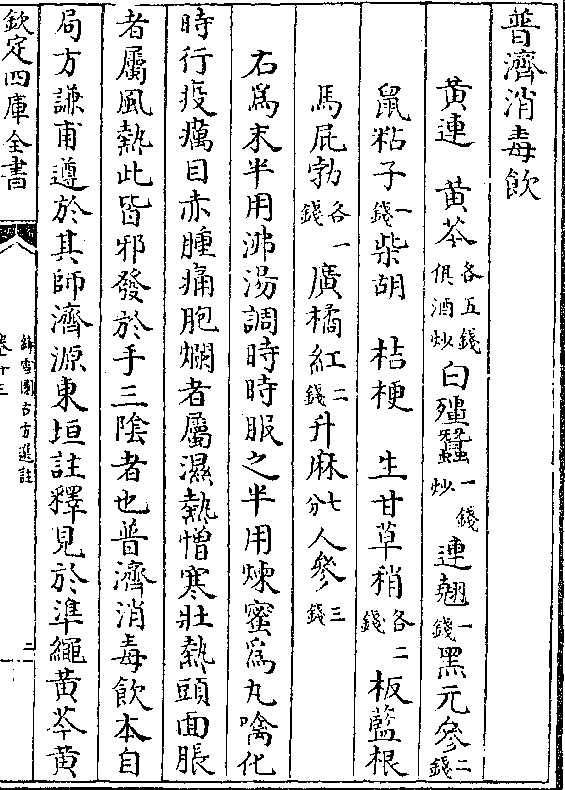 普濟消毒飲
黄連　黄芩各五錢俱酒炒白殭蠶一錢炒連翹一錢黑元參二錢
鼠粘子一錢柴胡　桔梗　生甘草稍各二錢板藍根
馬屁勃各一錢廣橘紅二錢升麻七分人參三錢
右為末半用沸湯調時時服之半用煉蜜為丸噙化
時行疫癘目赤腫痛胞爛者屬濕熱憎寒壯熱頭面脹
者屬風熱此皆邪發於手三陰者也普濟消毒飲本自
局方謙甫遵於其師濟源東垣註釋見於準繩黄芩黄
欽定四庫全書
絳雪園古方選註
卷十三
二